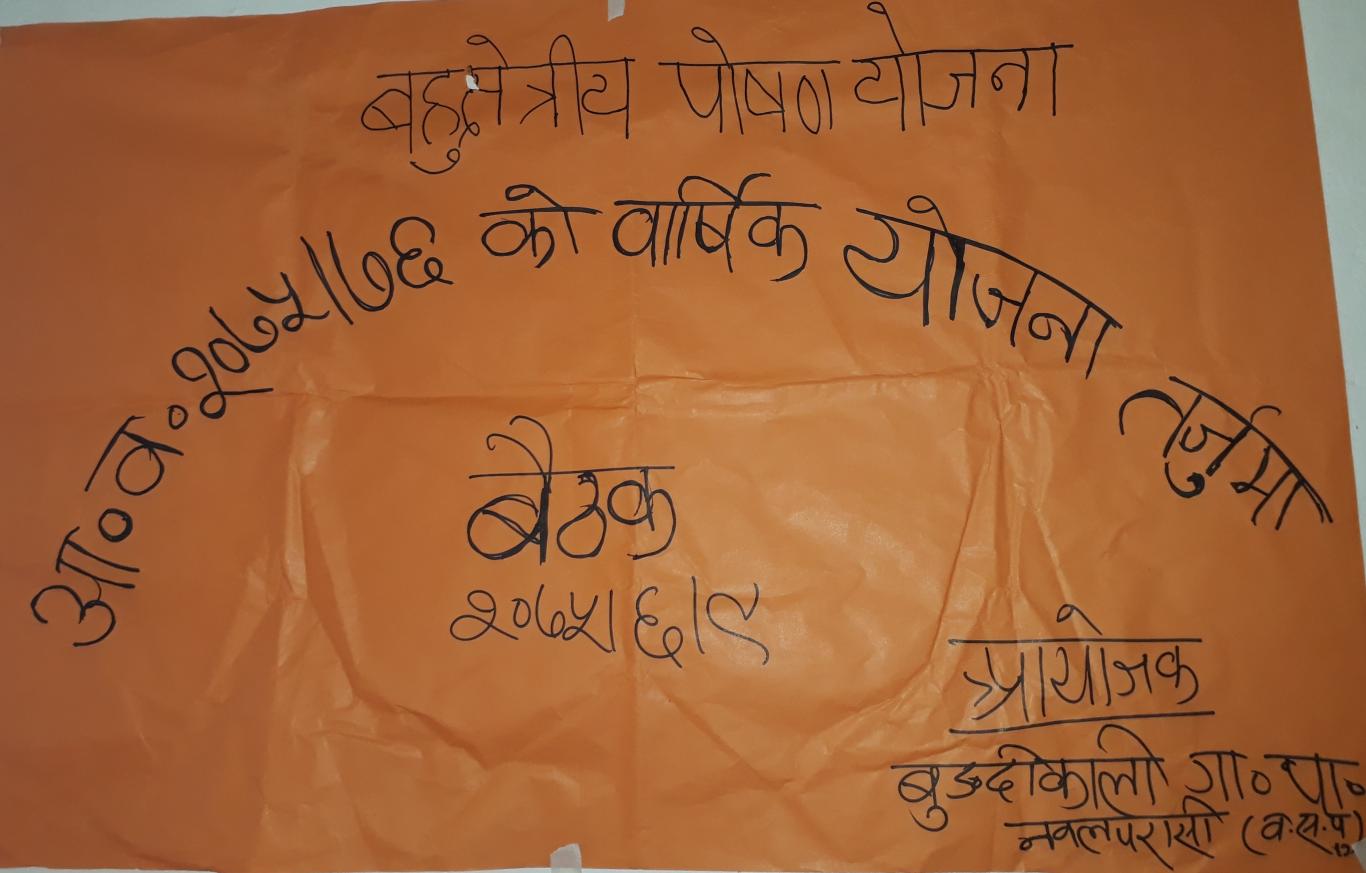 बहुक्षेत्रीय पोषण योजना
आ॰व॰२०७५।७६ को वार्षिक योजना तर्जुमा
बैठक
२०७५।६।९
प्रायोजक
बुङदीकाली गा॰पा॰
नवलपरासी (ब.सु.पू)